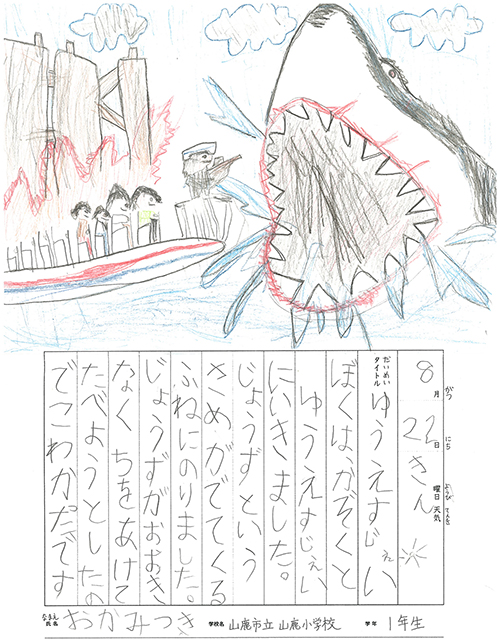 8月22日きん曜日 天気
がつ にち ようび てんき
だいめい
タイトル ゆうえすじぇい
ぼくはかぞくと
ゆうえすじぇい
にいきました。
じょうずという
さめがでてくる
ふねにのりました。
じょうずがおおき
なくちをあけて
たべようとしたの
でこわかたです
なまえ
氏名 おかみつき 学校名 山鹿市立 山鹿小学校 学年 1年生